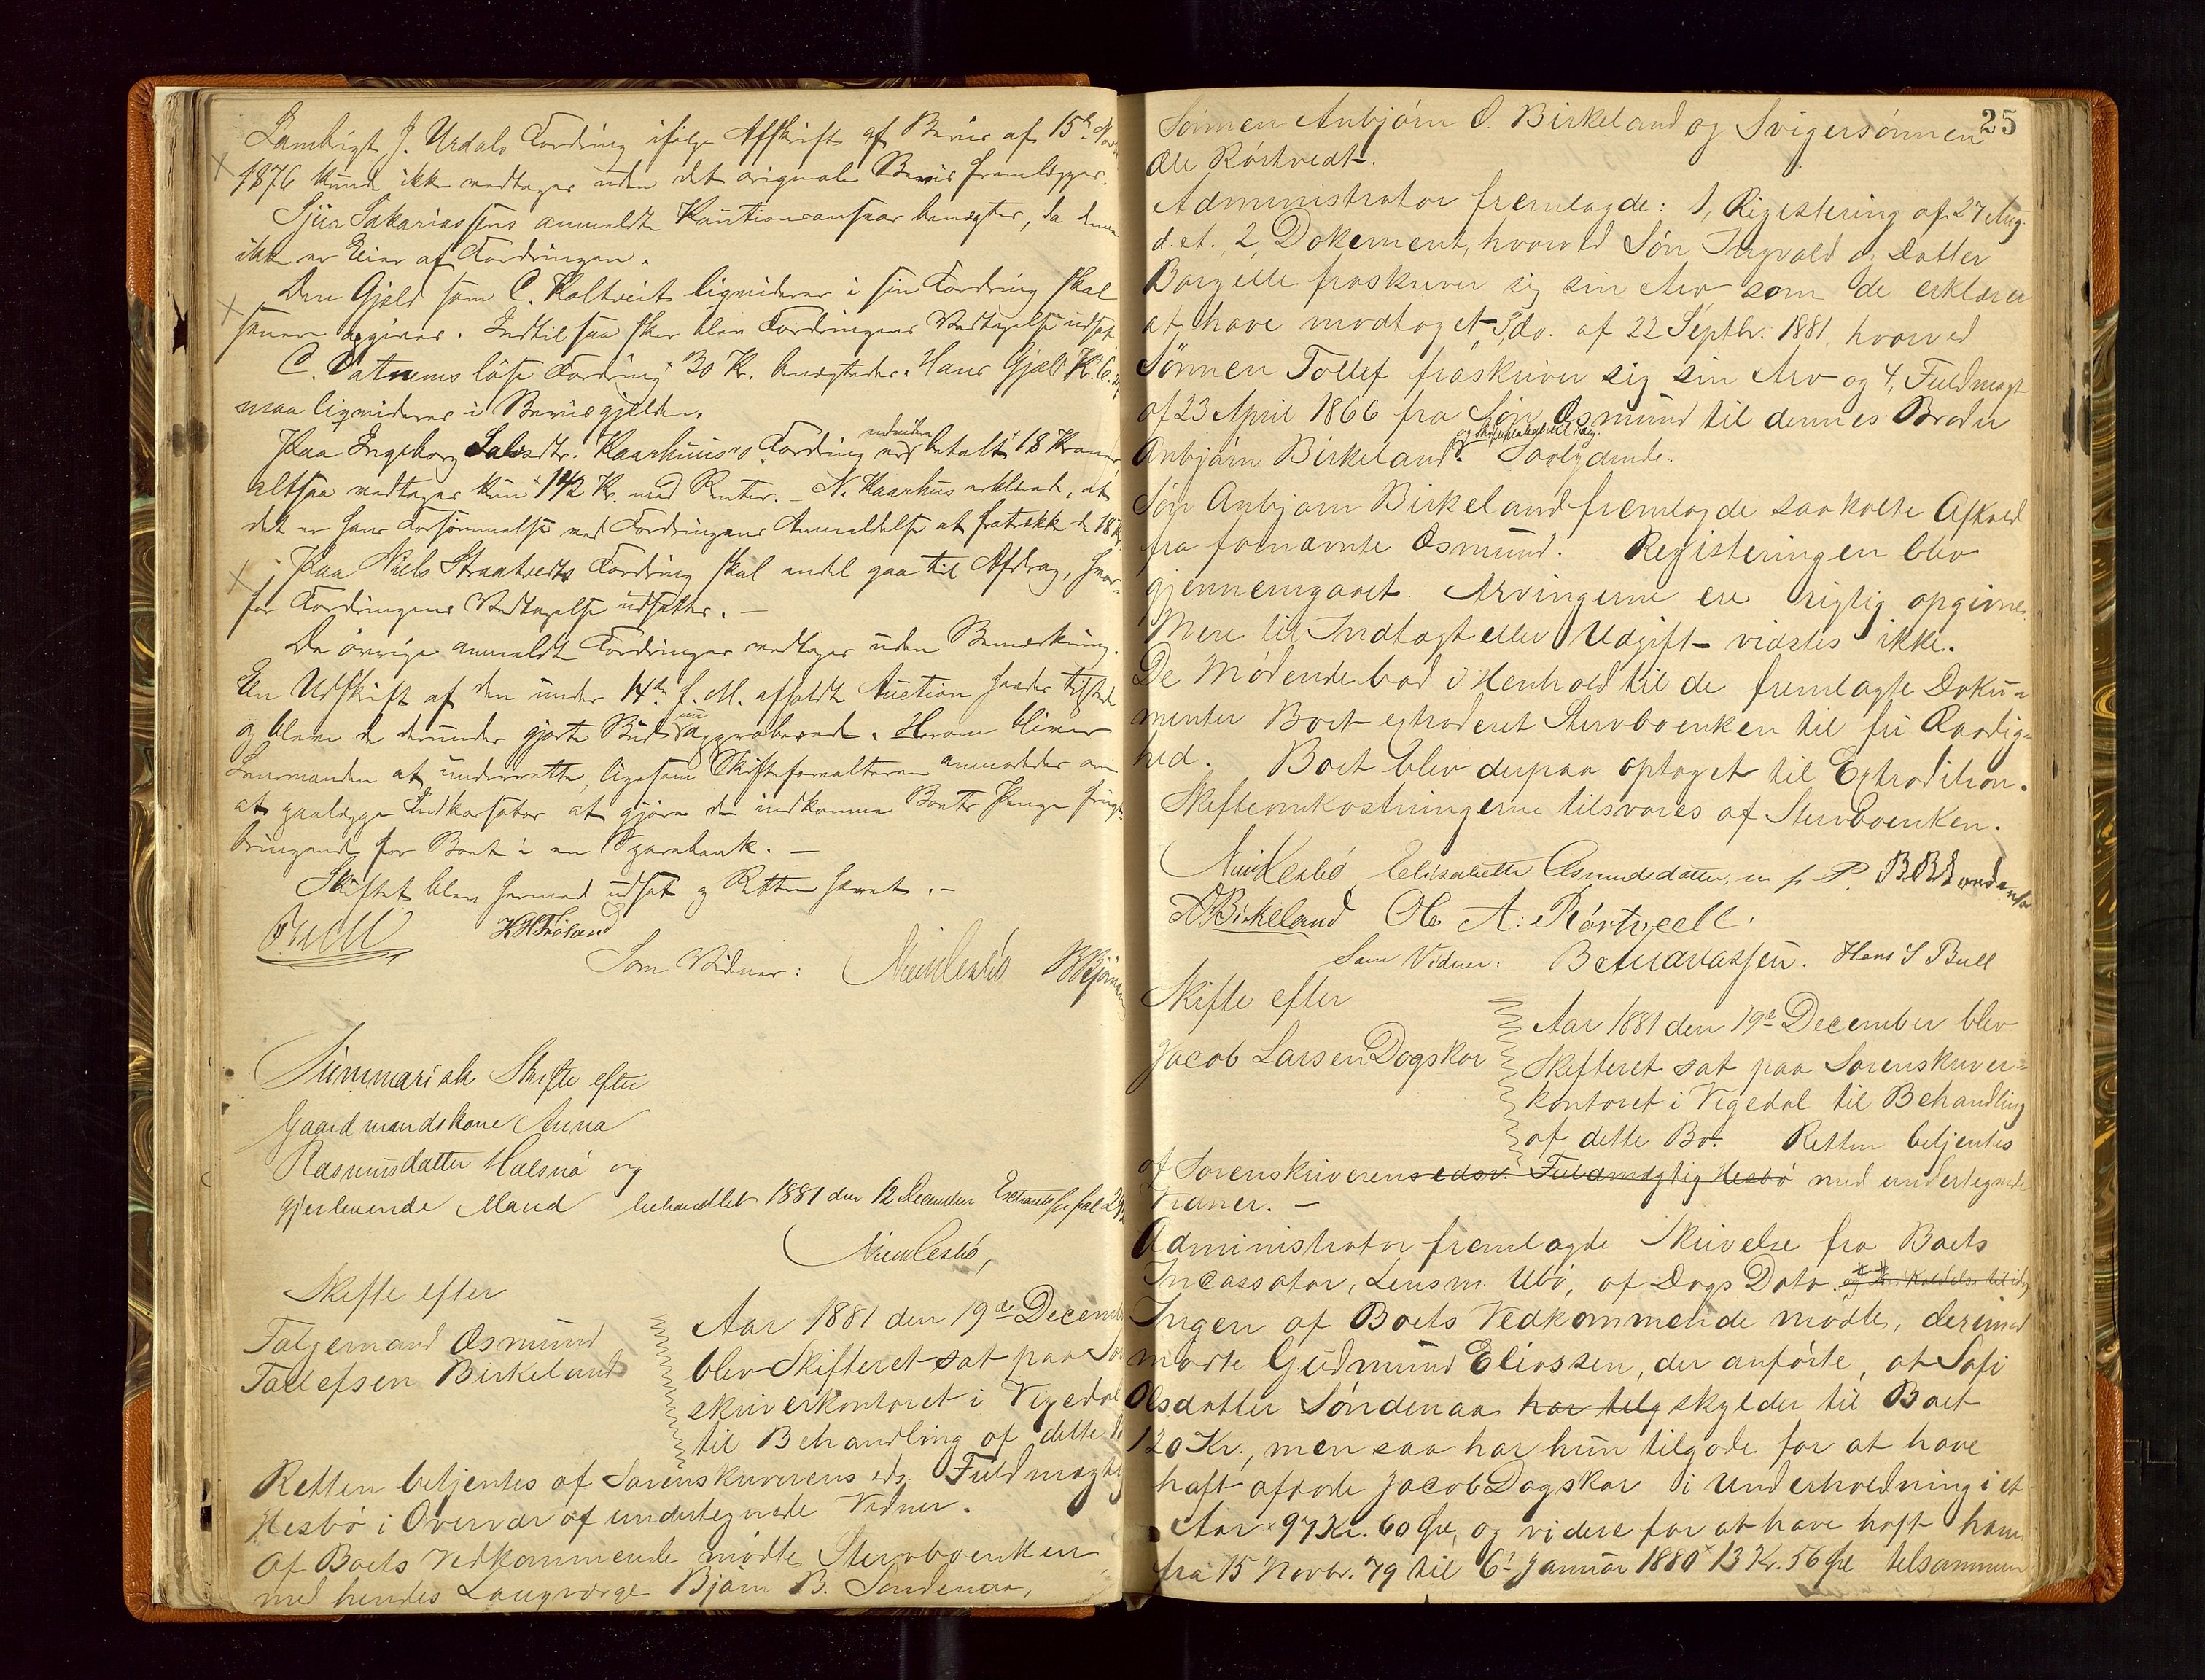 Lambrigt J. Urdals Fordring ifølge Afskrift af Bevis af 15de
1876 kunde ikke vedtages uden det originale Bevis fremlægges.
Sjur Sakariassens anmeldte Kautionsansvar benægtes, da denne
ikke er Eier af Fordringen.
Den Gjæld som C. Kaltveit liqviderer i sin Fordring skal
senere opgives. Indtil saa sker blev Fordringens Vedtagelse udsat
C. Østrems løse Fordring 30 Kr. benægtedes. Hans Gjæld Kr.
maa liqvideres i Bevisgjælden.
Paa Ingeborg Salvesdtr. Kaarhuus's Fordring er betalt 18 Kroner
altsaa vedtages kun 142 Kr. med Renter. – N. Kaarhus erklærede, at
det er hans Forsømmelse ved Fordringens Anmeldelse at fratrekke de 18 Kr.
Paa Niels Straatveits Fordring skal endel gaa til Afdrag, hvor-
for Fordringens Vedtagelse udsattes. –
De øvrige anmeldte Fordringer vedtages uden Bemærkning.
En Udskrift af den under 14de f. M. afholdte Auction havdes tilstede
og bleve de derunder gjorte Bud nu approberede. Herom bliver
Lensmanden at underrette, ligesom Skifteforvalteren anmodedes om
at paalægge Inkassator at gjøre de indkomne Boets Penge frugt-
bringende for Boet i en Sparebank. –
Skiftet blev hermed udsat og Retten hævet. –
Bull
Som Vidner:
Summarisk Skifte efter
Gaardmandskone Anna
Rasmusdatter Halsnø og
gjenlevende Mand behandlet 1881 den 12 December
Skifte efter
Følgemand Osmund
Tollefsen Birkeland
Aar 1881 den 19de Decem
blev Skifteret sat paa So
skriverkontoret i Vigedal
til Behandling af dette
Retten betjentes af Sorenskriverens eds. Fuldmægtig
Hesbø i Overvær af undertegnede Vidner.
Af Boets Vedkommende mødte Stervboenken
med hendes Laugværge Bjørn B. Søndenaa,
25
Sønnen Anbjørn O. Birkeland og Svigersønnen
Ole Rørtvedt.
Administrator fremlagde: 1, Registering af 27 Aug.
d. A. 2, Dokement, hvorved Søn Ingvald og Datter
Borgille fraskriver sig sin Arv som de erklærer
at have modtaget 3, do. af 22 Septbr. 1881, hvorved
Sønnen Tollef fraskriver sig sin Arv og 4, Fuldmagt
af 23 April 1866 fra Søn Osmund til dennes Broder
Anbjørn Birkeland. Saalydende.
Søn Anbjørn Birkeland fremlagde saakalte Afkald
fra fornævnte Osmund. Registeringen blev
gjennemgaaet. Arvingerne ere rigtig opgivne.
Mere til Indtægt eller Udgift vidstes ikke.
De Mødende bad i Henhold til de fremlagte Doku-
menter Boet extraderet Stervboenken til fri Raadig-
hed. Boet blev derpaa optaget til Extradition.
Skifteomkostningerne tilsvares af Stervboenken.
Elisabette Asmundsdatter, m. f. P.
A Birkeland Ole A. Rørtvedt.
Som Vidner: B Andreassen. Hans S Bull
Skifte efter
Jacob Larsen Dogskar
Aar 1881 den 19de December blev
Skifteret sat paa Sorenskriver-
kontoret i Vigedal til Behandling
af dette Bo. Retten betjentes
af Sorenskriverens edsv. Fuldmægtig Hesbø med undertegnede
Vidner. –
Administrator fremlagde Skrivelse fra Boets
Incassator, Lensm. Ubø, af Dags Dato.
Ingen af Boets Vedkommende mødte, derimod
mødte Gudmund Eliassen, der anførte, at Sofi
Olsdatter Søndenaa har tilg skylder til Boet
120 Kr., men saa har hun tilgode for at have
haft afdøde Jacob Dogskar i Underholdning i et
Aar 97 Kr. 60 Øre, og videre for at have haft ham
fra 15 Novbr. 79 til 6te Januar 1880 13 Kr. 56 Øre tilsammen